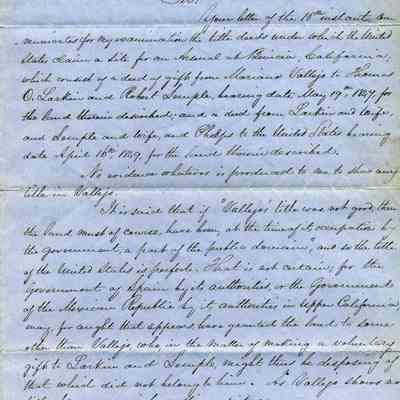 Sir:
Your letter of the 18th instant, com
municates for my examination the title deeds under which the United
States claim a site for an Arsenal at Benicia, California,
which consist of a deed of gift from Mariano Vallejo to Thomas
O. Larkin and Robert Semple, bearing date May 19th 1847, for
the land therein described; and a deed from Larkin and wife,
and Semple and wife, and Phelps to the United States bearing
date April 16th 1849, for the land therein described.
No evidence whatever is produced to me to show any
title in Vallejo.
It is said that if "Vallejo's title was not good, then
the land must of course, have been, at the time of occupation by
the government, a part of the public domain", and so the title
of the United States is perfect. That is not certain; for the
Government of Spain by its authorities, or the Government
of the Mexican Republic by its authorities in Upper California,
may, for aught that appears, have granted the land to some
other than Vallejo who, in the matter of making a voluntary
gift to Larkin and Semple, might thus be disposing of
that which did not belong to him. As Vallejo shows no